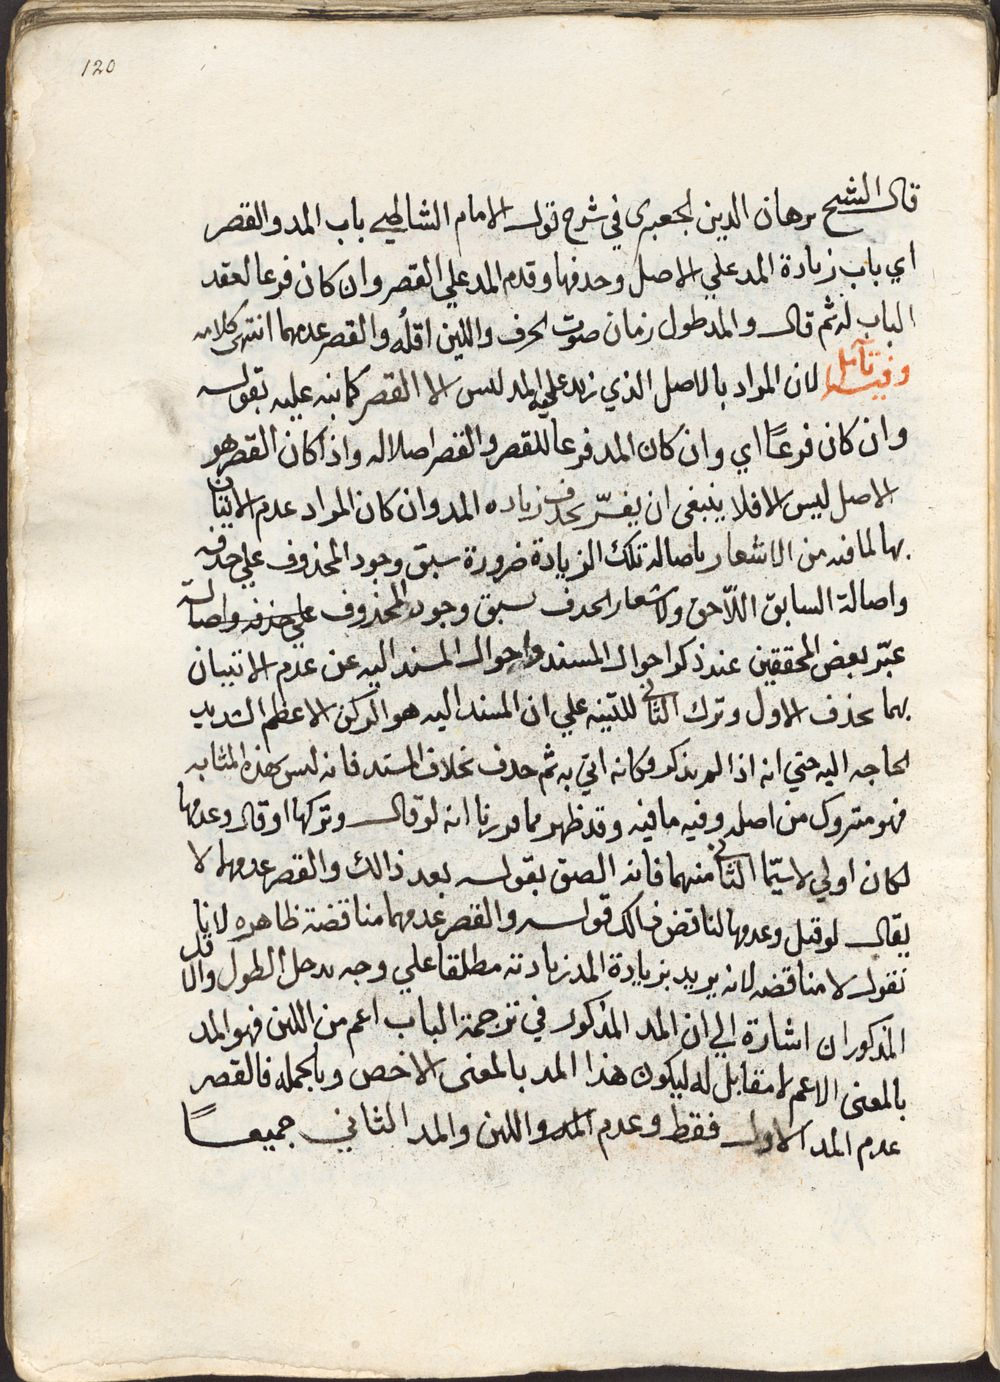 120
قال الشيخ برهان الدين الجعبرى في شرح قول الامام الشاطبي باب المد والقصر
اي باب زيادة المد علي الاصل وحذفها وقدم المد علي القصر وان كان فرعا لعقد
الباب له ثم قال والمد طول زمان صوت الحرف واللين اقله والقصر عدمهما انتهى كلامه
وفيه تأمل لان المراد بالاصل الذي زيد عليه المد ليس الا القصر كما نبه عليه بقوله
وان كان فرعًا اي وان كان المد فرعا للقصر والقصر اصلا له واذا كان القصر هو
الاصل ليس الا فلا ينبغى ان يفسّر بحذف زياده المد وان كان المراد عدم الاتيان
بها لما فيه من الاشعار باصالة تلك الزيادة ضرورة سبق وجود المحذوف علي حذفه
واصالة السابق اللاّحق ولاشعار الحذف بسبق وجود المحذوف علي حذفه واصالته
عبّر بعض المحققين عند ذكر احوال المسند واحوال المسند اليه عن عدم الاتيان
بهما بحذف الاول وترك الثاني للتنبيه علي ان المسند اليه هو الركن الاعظم الشديد
الحاجه اليه حتي انه اذا لم يذكر فكانه اتي به ثم حذف بخلاف المسند فانه ليس بهذه المثابه
فهو متروك من اصله وفيه ما فيه وقد ظهر مما قررنا انه لو قال وتركها او قال وعدمها
لكان اولي لا سيّما الثاني منهما فانه الصق بقوله بعد ذالك والقصر عدمهما لا
يقال لو قيل وعدمها لناقض ذالك قوله والقصر عدمهما مناقضة ظاهره لانا
نقول لا مناقضه لانه يريد بزيادة المد زيادته مطلقا علي وجه يدخل الطول والاقل
المذكوران اشارة الي ان المد المذكور في ترجمة الباب اعم من اللين فهو المد
بالمعنى الاعم لا مقابل له ليكون هذا المد بالمعنى الاخص وبالجمله فالقصر
عدم المد الاول فقط وعدم المد واللين والمد الثاني جميعًا